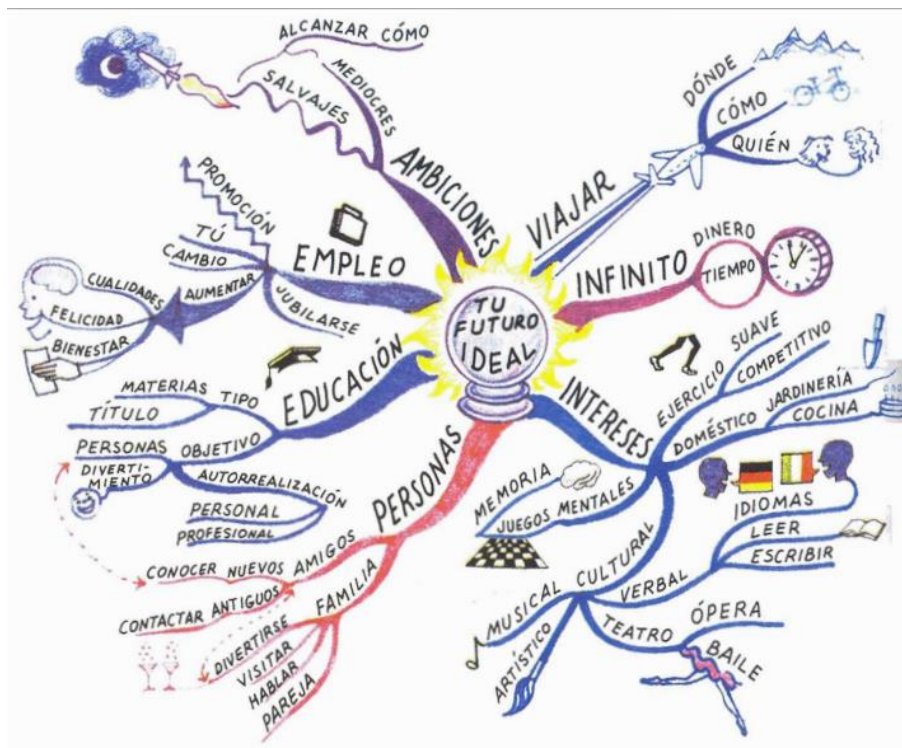 TU
FUTURO
IDEAL
AMBICIONES
MEDIOCRES
SALVAJES
ALCANZAR CÓMO
VIAJAR
DÓNDE
CÓMO
QUIÉN
INFINITO
DINERO
TIEMPO
INTERESES
EJERCICIO
SUAVE
COMPETITIVO
DOMÉSTICO
JARDINERÍA
COCINA
JUEGOS MENTALES
MEMORIA
CULTURAL
VERBAL
IDIOMAS
LEER
ESCRIBIR
TEATRO
ÓPERA
BAILE
MUSICAL
ARTÍSTICO
PERSONAS
AMIGOS
CONOCER NUEVOS
CONTACTAR ANTIGUOS
FAMILIA
DIVERTIRSE
VISITAR
HABLAR
PAREJA
EDUCACIÓN
TIPO
MATERIAS
TÍTULO
OBJETIVO
PERSONAS
DIVERTI-
MIENTO
AUTORREALIZACIÓN
PERSONAL
PROFESIONAL
EMPLEO
PROMOCIÓN
TÚ
CAMBIO
AUMENTAR
CUALIDADES
FELICIDAD
BIENESTAR
JUBILARSE